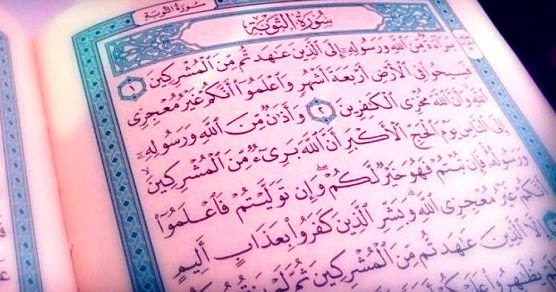 سُورَةُ التَّوْبَةِ
سُورَةُ التَّوْبَةِ
بَرَآءَةٌ مِّنَ ٱللَّهِ وَرَسُولِهِۦٓ إِلَى ٱلَّذِينَ عَٰهَدتُّم مِّنَ ٱلْمُشْرِكِينَ ١
فَسِيحُوا۟ فِى ٱلْأَرْضِ أَرْبَعَةَ أَشْهُرٍ وَٱعْلَمُوٓا۟ أَنَّكُمْ غَيْرُ مُعْجِزِى
ٱللَّهِ وَأَنَّ ٱللَّهَ مُخْزِى ٱلْكَٰفِرِينَ ٢ وَأَذَٰنٌ مِّنَ ٱللَّهِ وَرَسُولِهِۦٓ
إِلَى ٱلنَّاسِ يَوْمَ ٱلْحَجِّ ٱلْأَكْبَرِ أَنَّ ٱللَّهَ بَرِىٓءٌ مِّنَ ٱلْمُشْرِكِينَ
وَرَسُولُهُۥ فَإِن تُبْتُمْ فَهُوَ خَيْرٌ لَّكُمْ وَإِن تَوَلَّيْتُمْ فَٱعْلَمُوٓا۟
أَنَّكُمْ غَيْرُ مُعْجِزِى ٱللَّهِ وَبَشِّرِ ٱلَّذِينَ كَفَرُوا۟ بِعَذَابٍ أَلِيمٍ
إِلَّا ٱلَّذِينَ عَٰهَدتُّم مِّنَ ٱلْمُشْرِكِينَ ثُمَّ لَمْ
يُظَٰهِرُوا۟ عَلَيْكُمْ